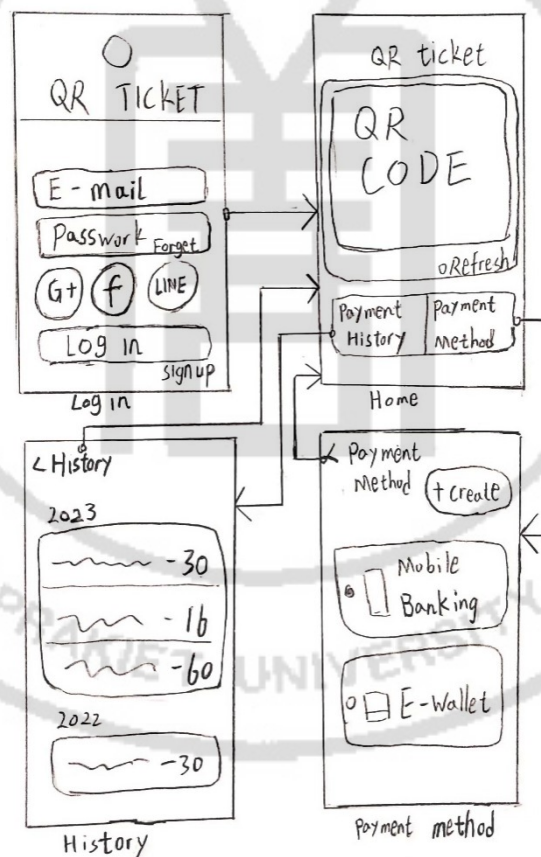 QR TICKET
E-mail
Passwork
Forget
G+ f LINE
Log in
sign up
Log in
QR ticket
QR
CODE
Refresh
Payment
History
Payment
Method
Home
< History
2023
-30
-16
-60
2022
-30
History
< Payment
Method
+ Create
Mobile
Banking
E-Wallet
Payment method
PRAKIET UNIVERSITY